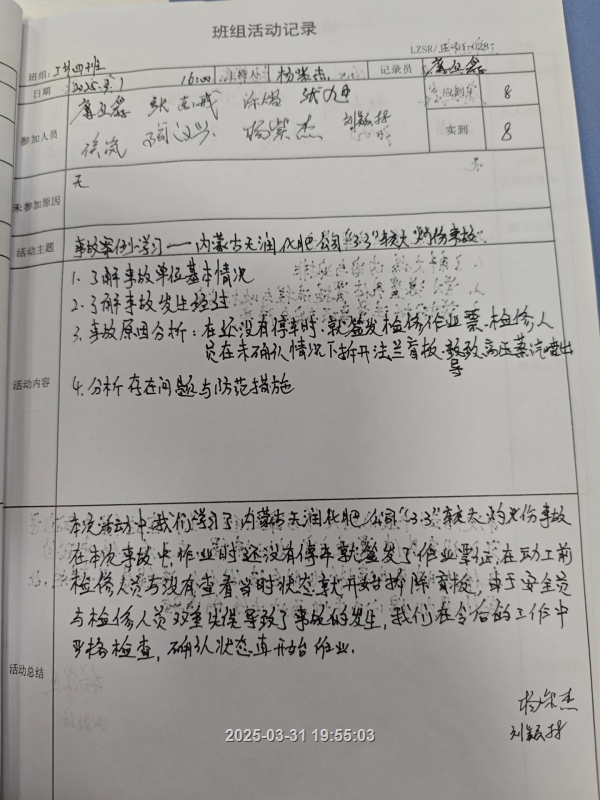 班组活动记录
LZSR/
班组: 四班
记录员
日期 2025.3.1 16:00 杨紫杰
应到 8
参加人员
杨紫杰
实到 8
未参加原因 无
活动主题 事故案例学习——内蒙古天润化肥公司“3.3”较大灼伤事故
1. 了解事故单位基本情况
2. 了解事故发生经过
3. 事故原因分析: 在还没有停车时, 就签发检修作业票, 检修人
员在未确认情况下拆开法兰盲板, 导致高压蒸汽喷出
活动内容 4. 分析存在问题与防范措施
本次活动中, 我们学习了内蒙古天润化肥公司“3.3”较大灼伤事故
在本次事故中, 作业时还没有停车就签发了作业票证, 在动工前
检修人员与没有查看当时状态就开始拆除盲板, 由于安全员
与检修人员双重失误导致了事故的发生, 我们在今后的工作中
严格检查, 确认状态再开始作业.
活动总结
杨紫杰
2025-03-31 19:55:03